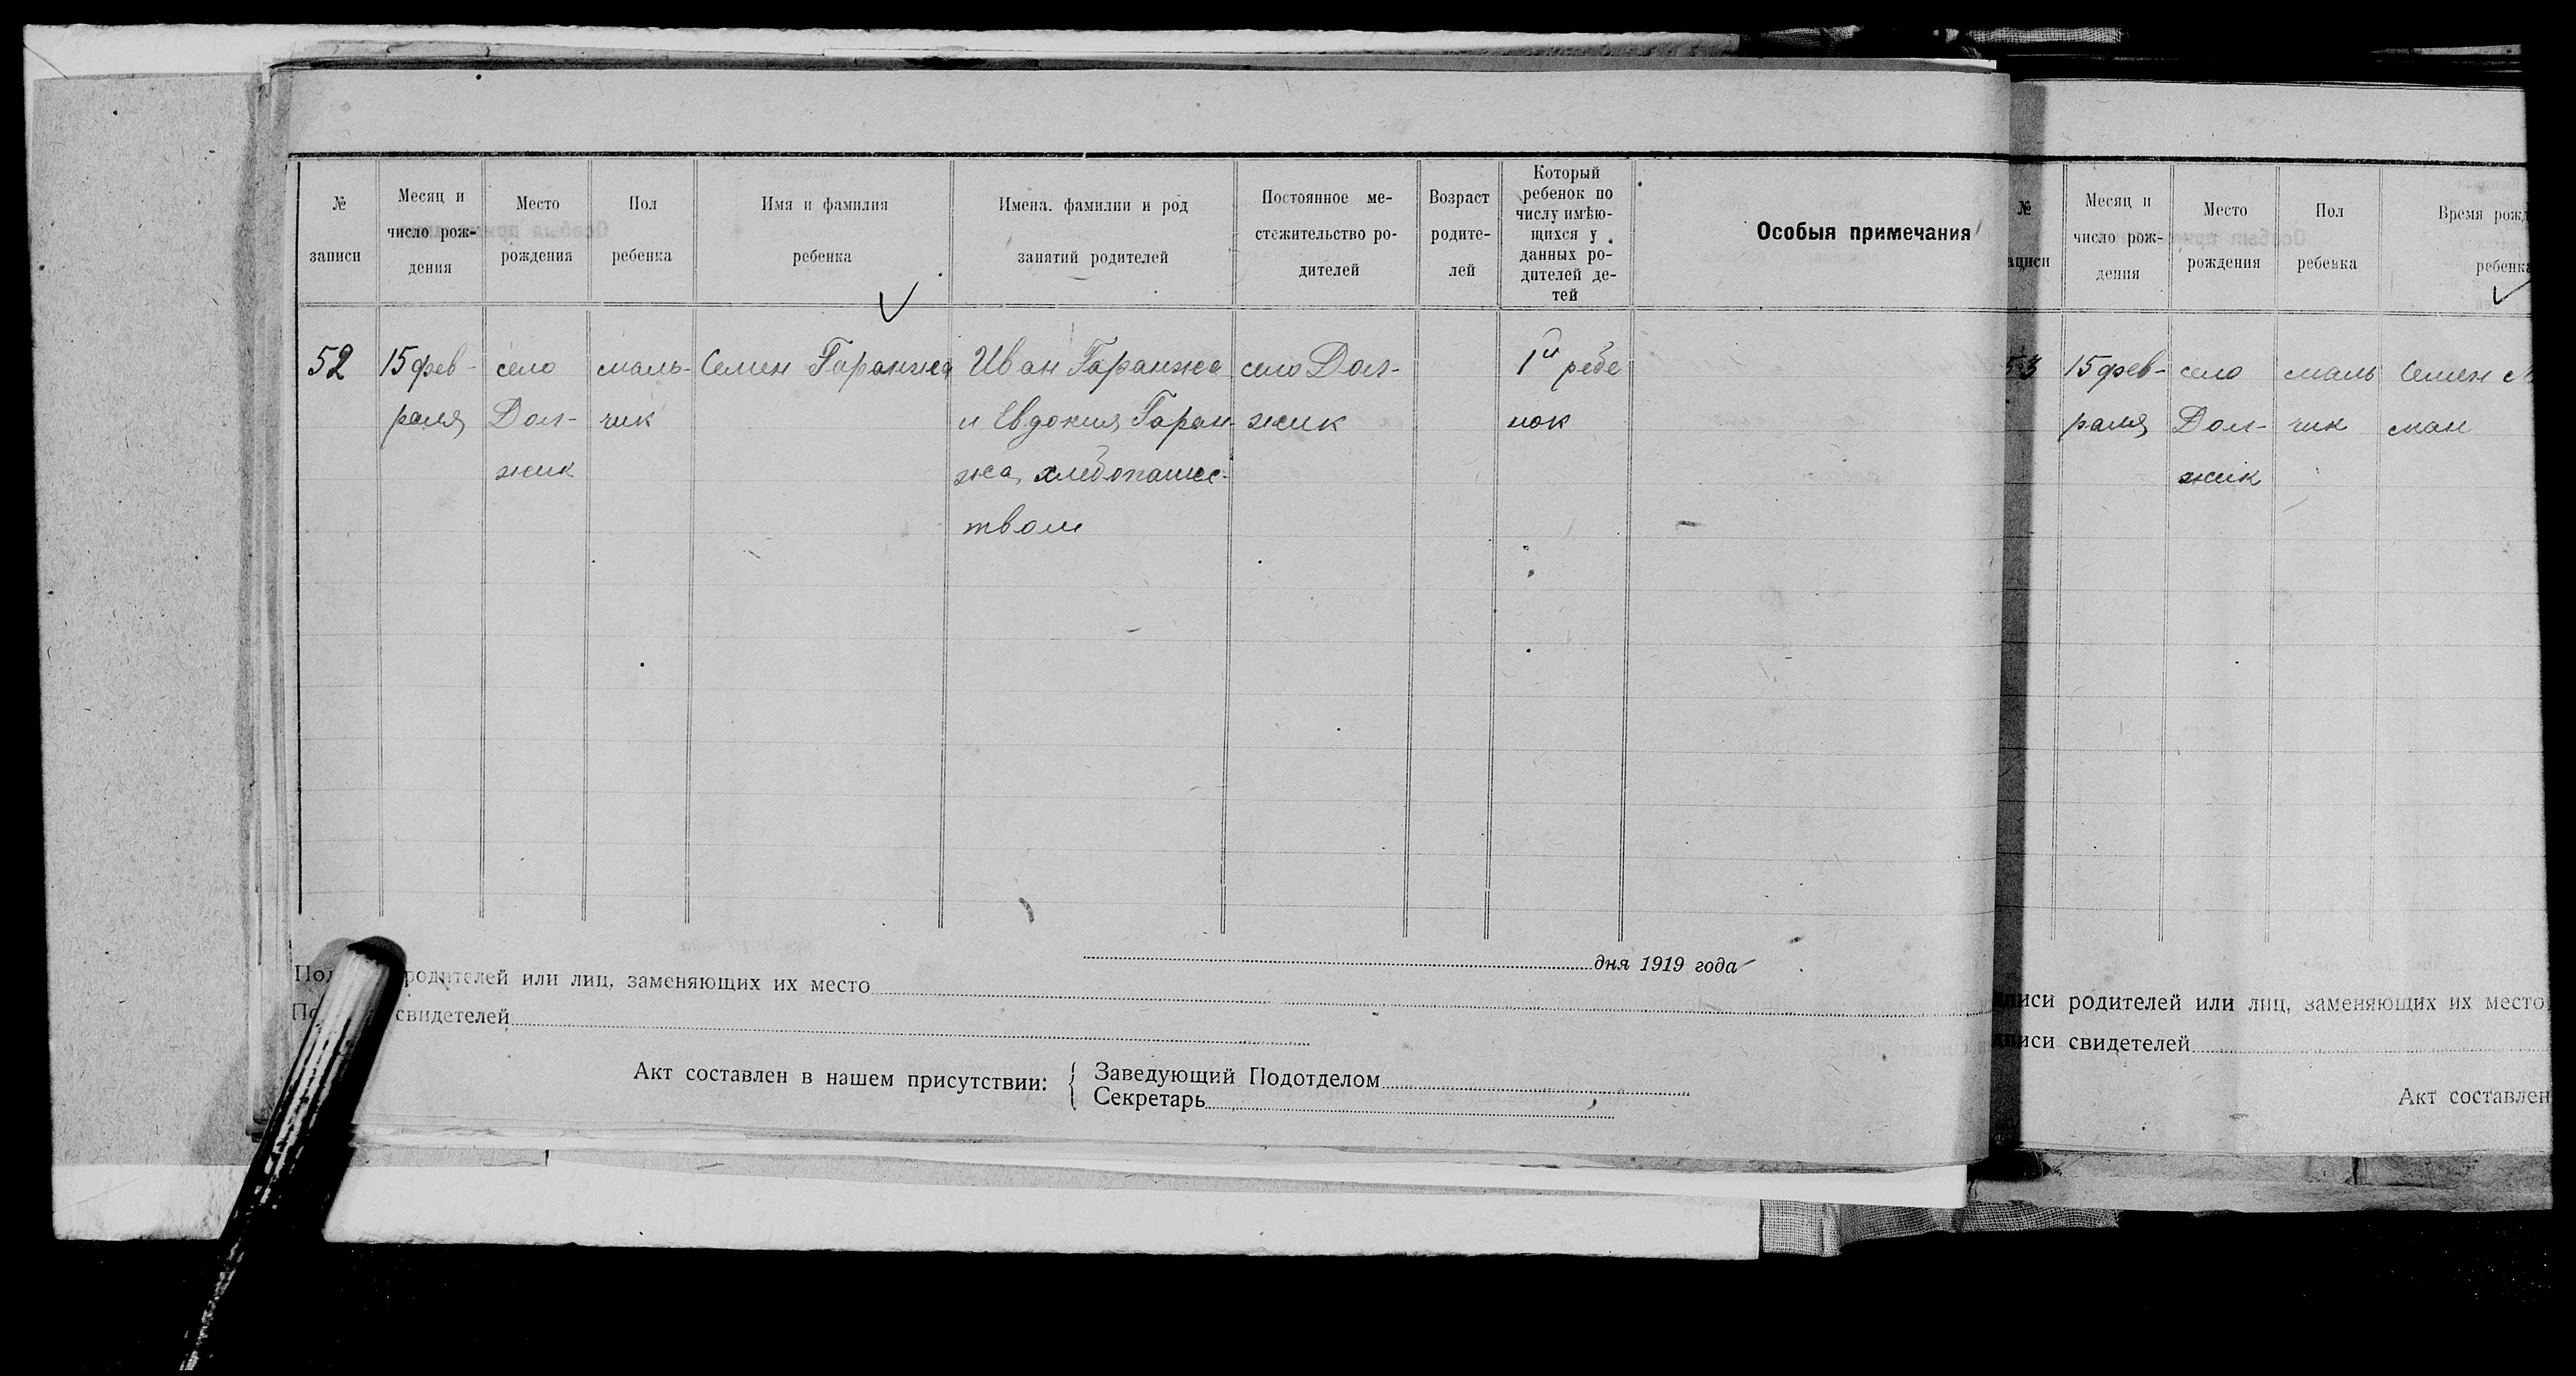 № записи
Месяц и число рож-дения
Место рождения
Пол ребенка
Имя и фамилия ребенка
Имена. фамилии и род занятий родителей
Постоянное ме-стожительство ро-дителей
Возраст родите-лей
Который ребенок по числу имѣю-щихся у данных ро-дителей де-тей
Особыя примечания
52
15 фев-
раля
село
Дол-
жик
маль-
чик
Семен Гаранжа
Иван Гаранжа
и Евдокия Гаран
жа, хлебопашес-
твом
село Дол-
жик
1й ребе
нок
дня 1919 года
родителей или лиц, заменяющих их место
свидетелей
Акт составлен в нашем присутствии:
Заведующий Подотделом
Секретарь
№
Месяц и число рож-дения
Место рождения
Пол ребенка
Время
ребенка
53
15 фев-
раля
село
Дол-
жик
маль
чик
Семен
ман
родителей или лиц, заменяющих их место
свидетелей
Акт составлен